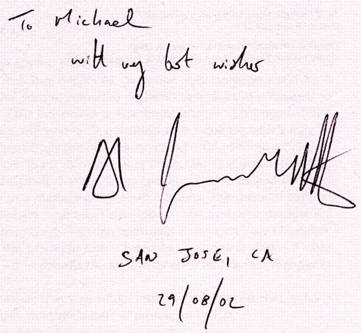 To Michael
with my best wishes
SAN JOSE, CA
29/08/02